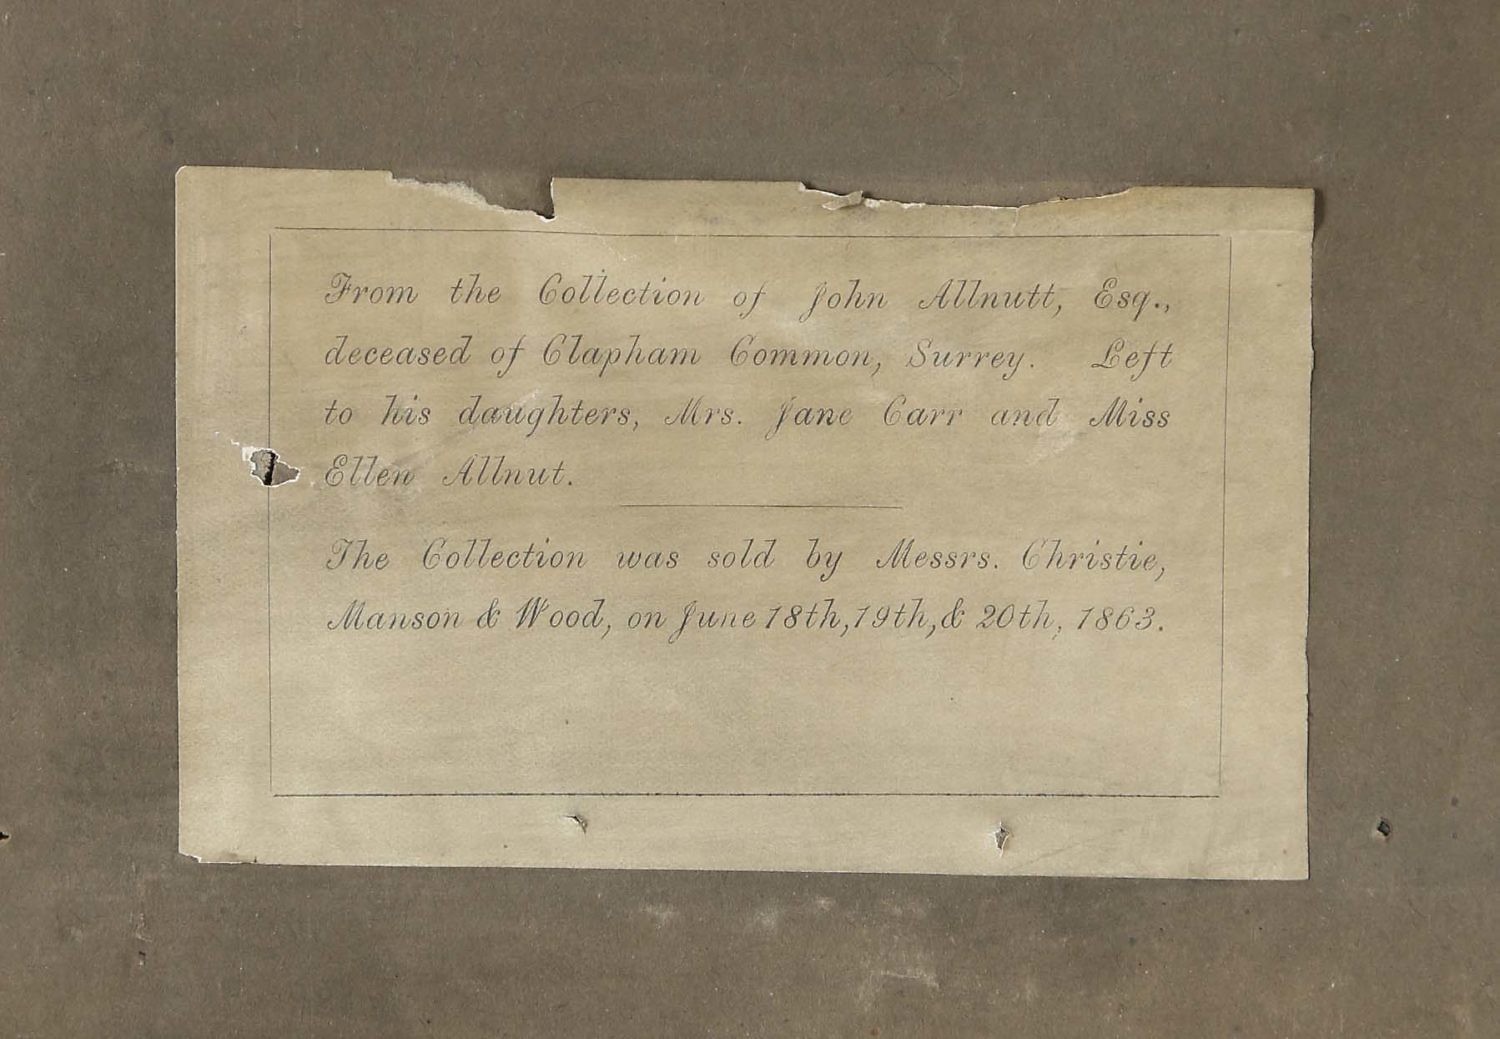 From the Collection of John Allnutt, Esq.,
deceased of Clapham Common, Surrey. Left
to his daughters, Mrs. Jane Carr and Miss
Ellen Allnut.
The Collection was sold by Messrs. Christie,
Manson & Wood, on June 18th, 19th, & 20th, 1863.